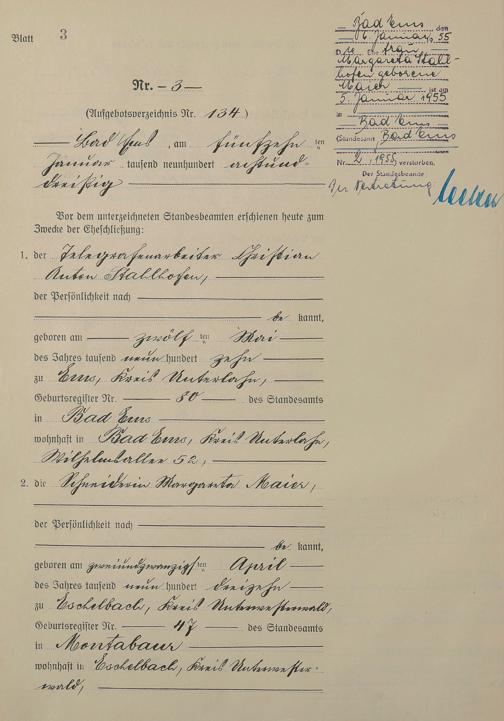 Blatt 3
Bad Ems den
6. Januar 1955
Die Ehefrau
Margareta Stahl-
hofen geborene
Maier ist am
5. Januar 1955
in Bad Ems
(Standesamt Bad Ems
Nr. 2/1955) verstorben.
Der Standesbeamte
In Vertretung
Nr. - 3 -
(Aufgebotsverzeichnis Nr. 134)
Bad Ems, am fünfzehn ten
Januar tausend neunhundert achtund-
dreißig
Vor dem unterzeichneten Standesbeamten erschienen heute zum
Zwecke der Eheschließung:
1. der Telegrafenarbeiter Christian
Anton Stahlhofen,
der Persönlichkeit nach
be kannt,
geboren am zwölf ten Mai
des Jahres tausend neun hundert zehn
zu Ems, Kreis Unterlahn,
Geburtsregister Nr. 80 des Standesamts
in Bad Ems
wohnhaft in Bad Ems, Kreis Unterlahn,
Wilhelmsallee 52,
2. die Schneiderin Margareta Maier,
der Persönlichkeit nach
be kannt,
geboren am zweiundzwanzigs ten April
des Jahres tausend neun hundert dreizehn
zu Eschelbach, Kreis Unterwesterwald,
Geburtsregister Nr. 47 des Standesamts
in Montabaur
wohnhaft in Eschelbach, Kreis Unterwester-
wald,